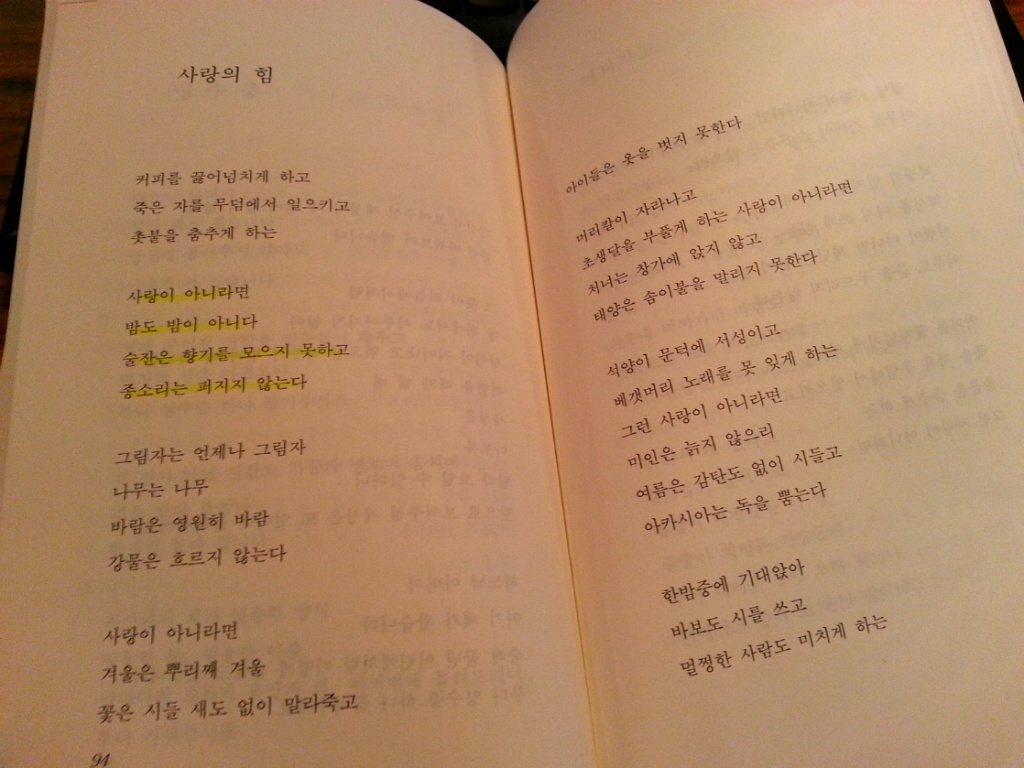 사랑의 힘
커피를 끓어넘치게 하고
죽은 자를 무덤에서 일으키고
촛불을 춤추게 하는
사랑이 아니라면
밤도 밤이 아니다
술잔은 향기를 모으지 못하고
종소리는 퍼지지 않는다
그림자는 언제나 그림자
나무는 나무
바람은 영원히 바람
강물은 흐르지 않는다
사랑이 아니라면
겨울은 뿌리째 겨울
꽃은 시들 새도 없이 말라죽고
94
아이들은 옷을 벗지 못한다
머리칼이 자라나고
초생달을 부풀게 하는 사랑이 아니라면
처녀는 창가에 앉지 않고
태양은 솜이불을 말리지 못한다
석양이 문턱에 서성이고
베갯머리 노래를 못 잊게 하는
그런 사랑이 아니라면
미인은 늙지 않으리
여름은 감탄도 없이 시들고
아카시아는 독을 뿜는다
한밤중에 기대앉아
바보도 시를 쓰고
멀쩡한 사람도 미치게 하는